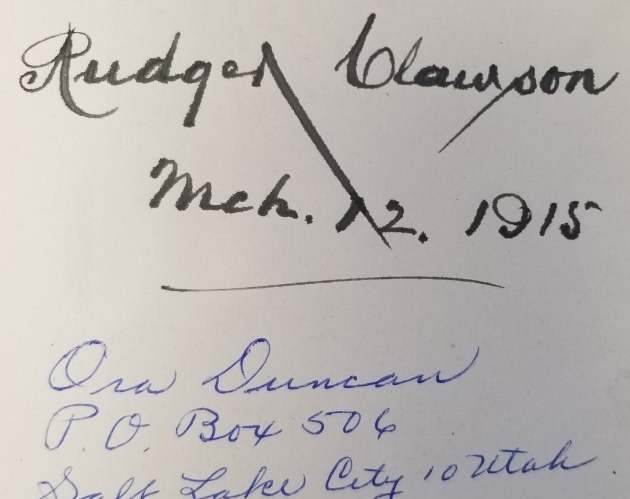 Rudger Clawson
Mch. 12. 1915
Ora Duncan
P.O. Box 506
Salt Lake City 10 Utah.